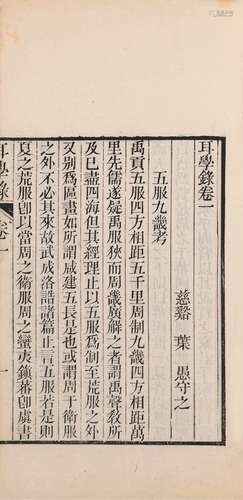 耳學錄卷一
慈谿 葉 愚守之
五服九畿考
禹貢五服四方相距五千里周制九畿四方相距萬
里先儒遂疑禹服狹而周畿廣解之者謂禹聲敎所
及已盡四海但其經理止以五服爲制至荒服之外
又別爲區畫如所謂咸建五長是也或以周于衛服
之外不必其來故武成洛誥諸篇止言五服若是則
夏之荒服卽以當周之衛服周之蠻夷鎮蕃卽虞書
耳學錄 卷一 一